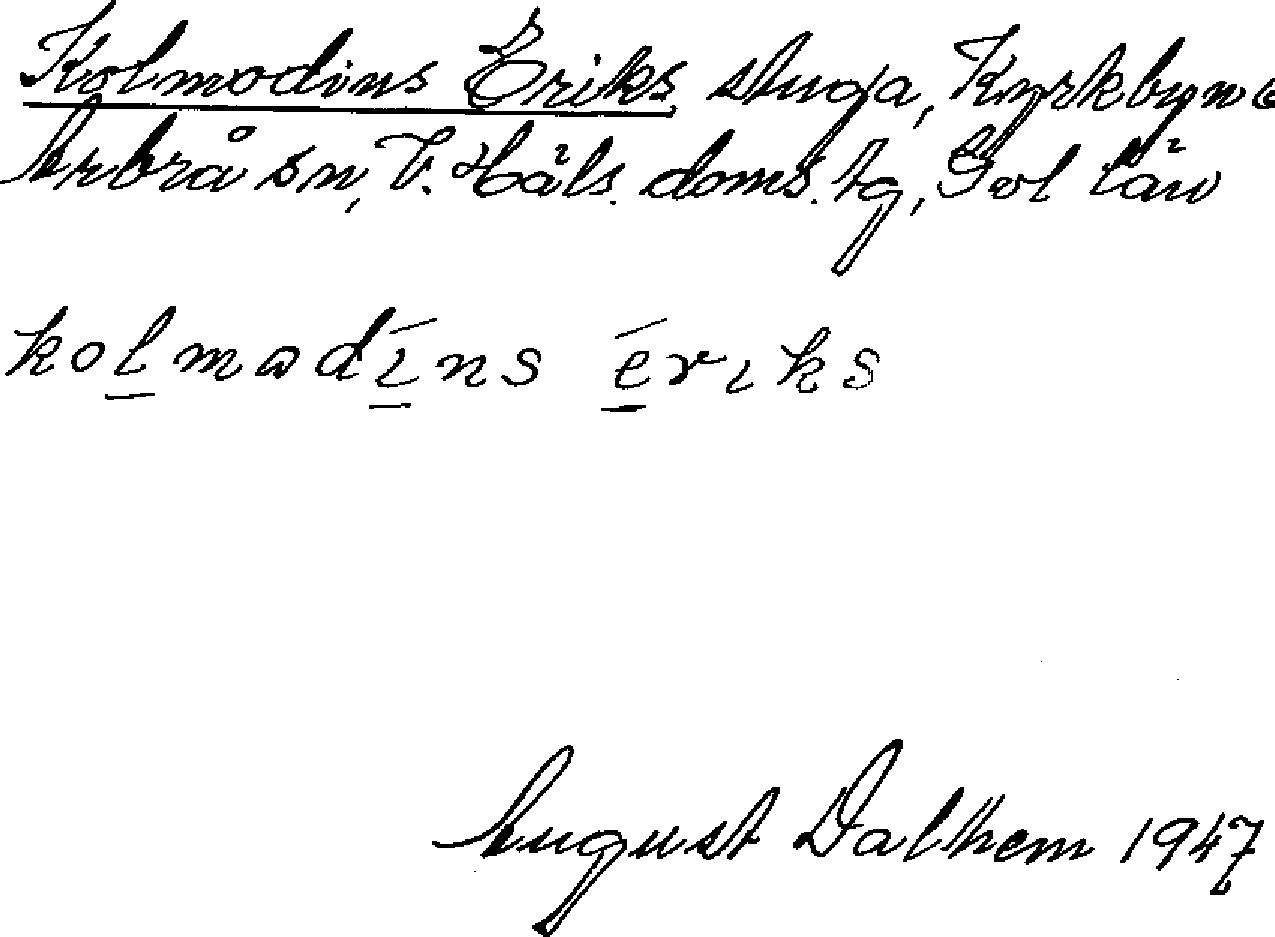 Kolmodins Eriks stuga, Kyrkbyn
Arbrå sn, V. Häls. doms. tg, Gvl län
kolmodins eriks
August Dalhem 1947